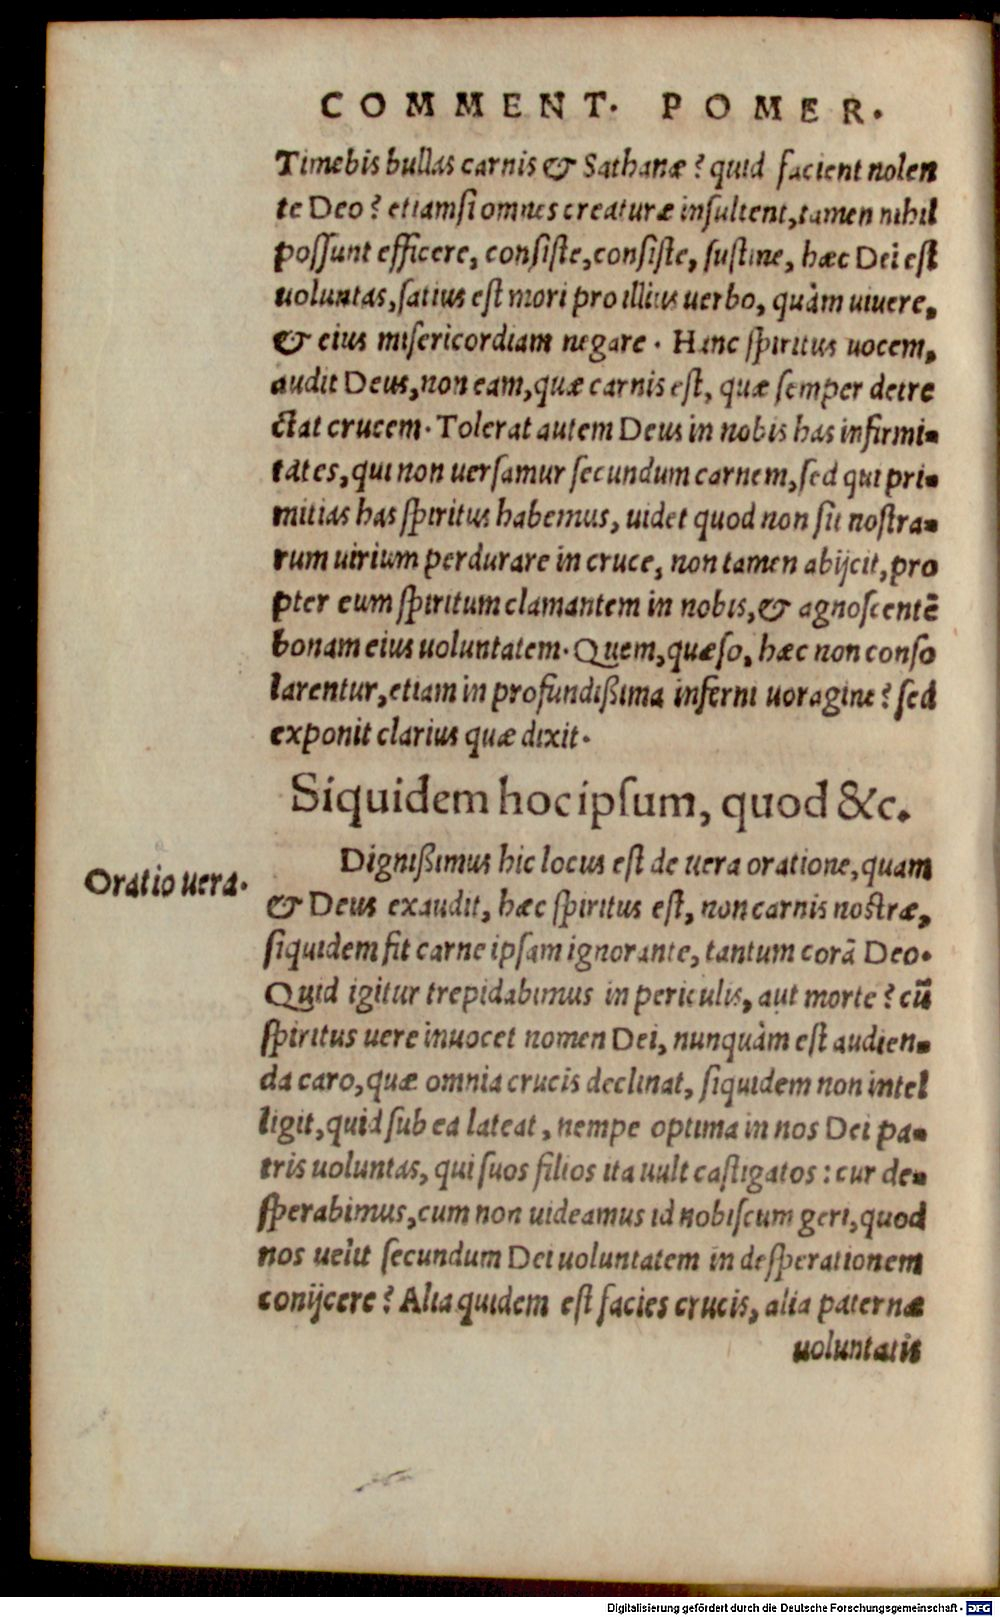 COMMENT. POMER.
Timebis bullas carnis & Sathanæ? quid facient nolen
te Deo? etiamsi omnes creaturæ insultent, tamen nihil
possunt efficere, consiste, consiste, sustine, hæc Dei est
uoluntas, satius est mori pro illius uerbo, quàm uiuere,
& eius misericordiam negare. Hanc spiritus uocem,
audit Deus, non eam, quæ carnis est, quæ semper detre
ctat crucem. Tolerat autem Deus in nobis has infirmi-
tates, qui non uersamur secundum carnem, sed qui pri-
mitias has spiritus habemus, uidet quod non sit nostra-
rum uirium perdurare in cruce, non tamen abijcit, pro
pter eum spiritum clamantem in nobis, & agnoscentē
bonam eius uoluntatem. Quem, quæso, hæc non conso
larentur, etiam in profundißima inferni uoragine? sed
exponit clarius quæ dixit.
Siquidem hoc ipsum, quod &c.
Dignißimus hic locus est de uera oratione, quam
Oratio uera.
& Deus exaudit, hæc spiritus est, non carnis nostræ,
siquidem fit carne ipsam ignorante, tantum corā Deo.
Quid igitur trepidabimus in periculis, aut morte? cū
spiritus uere inuocet nomen Dei, nunquàm est audien-
da caro, quæ omnia crucis declinat, siquidem non intel
ligit, quid sub ea lateat, nempe optima in nos Dei pa-
tris uoluntas, qui suos filios ita uult castigatos: cur de-
sperabimus, cum non uideamus id nobiscum geri, quod
nos uelit secundum Dei uoluntatem in desperationem
conijcere? Alia quidem est facies crucis, alia paternæ
uoluntatis
Digitalisierung gefördert durch die Deutsche Forschungsgemeinschaft - DFG